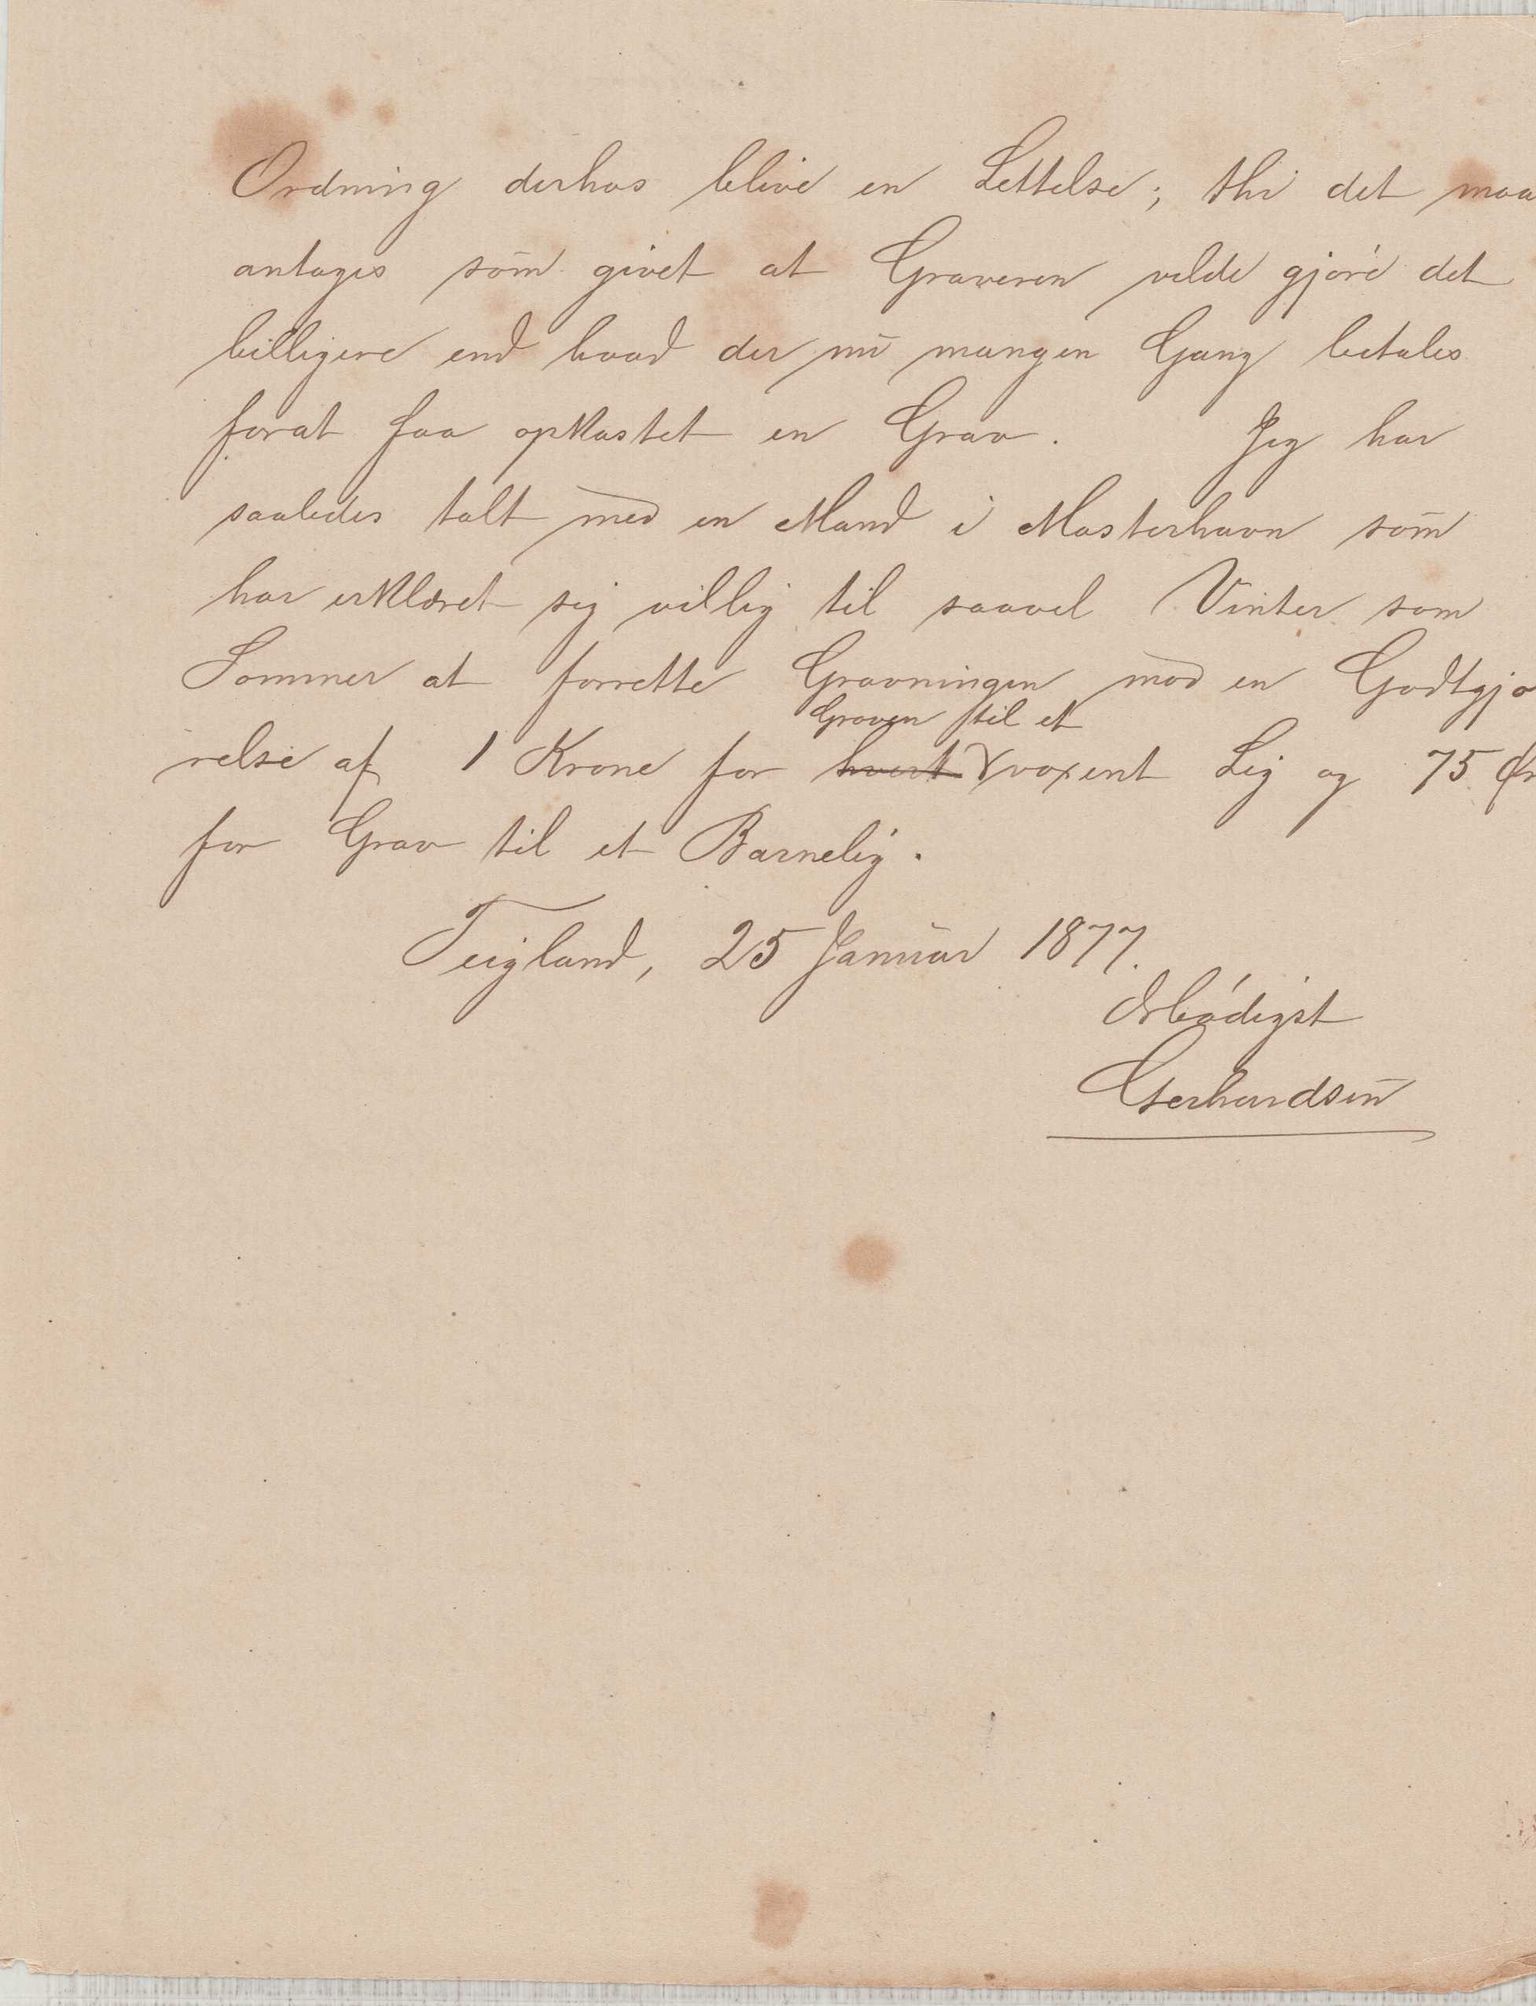 Ordning derhos blive en Lettelse; thi det maa
antages som givet at Graveren vilde gjøre det
billigere end hvad der nu mangen Gang betales
forat faa opkastet en Grav. Jeg har
saaledes talt med en Mand i Mosterhavn som
har erklæret sig villig til saavel Vinter som
Sommer at forrette Gravningen mod en Godtgjø
Graven til et
relse af 1 Krone for hvert voxent Lig og 75 Ør
for Grav til et Barnelig.
Teigland, 25 Januar 1877.
Ærbødigst
Gerhardsen